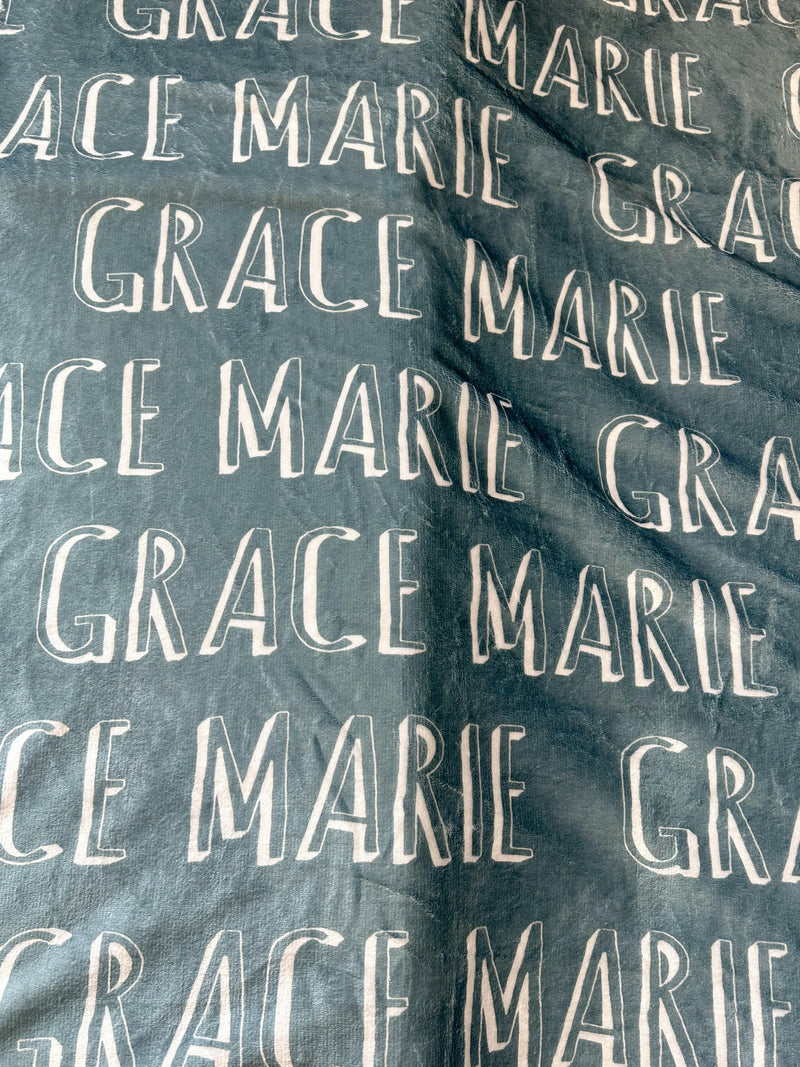 GRACE MARIE GRAC
ACE MARIE GRAC
GRACE MARIE
ACE MARIE GRA
GRACE MARIE
CE MARIE GRA
GRACE MARIE